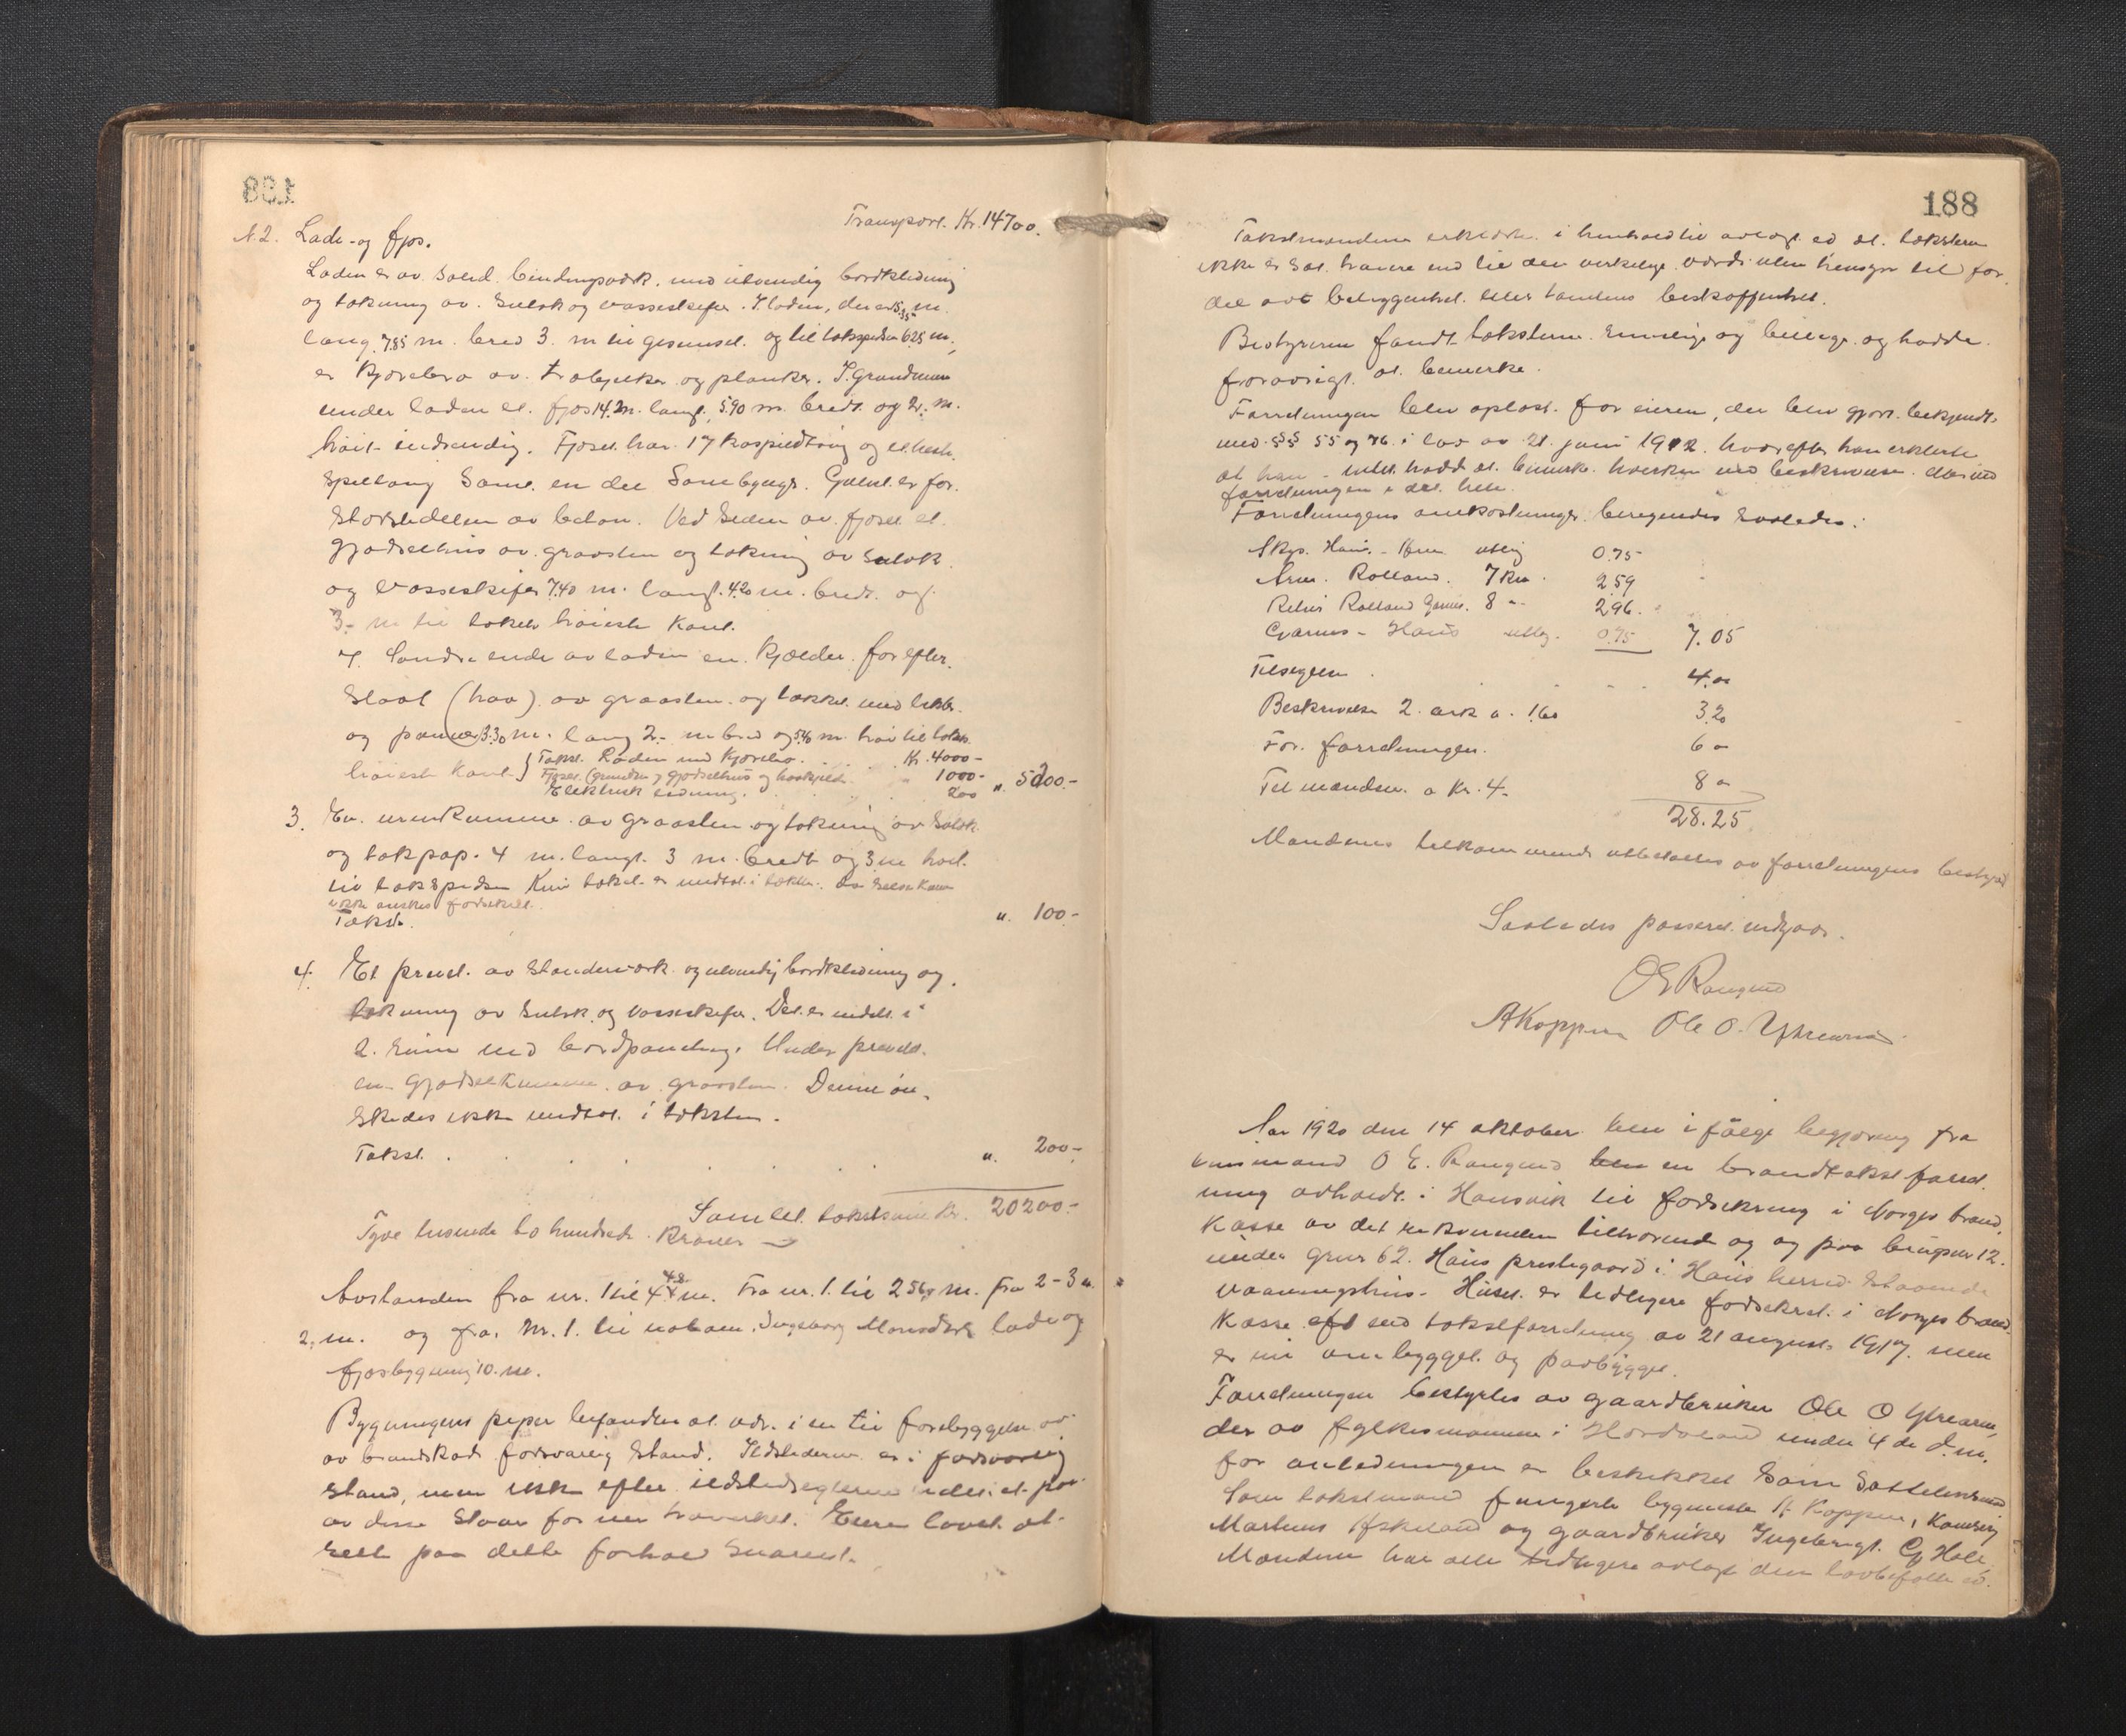 Transport. Kr. 14700.
N. 2. Lade- og fjøs.
Laden er av solid bindingsværk, med utvendig bordklædning
og tækning av sutak og vosseskifer. Laden, der er 15,35 m.
lang, 7.85 m. bred 3. m til gesimset og til takspidsen 6.25 m.,
er kjørebro av træbjelker og planker. I Grundmuren
under laden et fjøs 14.2 m. langt, 5.90 m. bredt og 2. m.
høit indvendig. Fjøset har 17 og et heste
spiltaug samt en del Gulvet er for
størstedelen av beton. Ved siden av fjøset et
gjødselhus av graasten og tækning av sutak
og vosseskifer 7.40 m. langt. 4.20 m. bredt og
3- m til takets høieste kant.
I søndre ende av laden en kjælder for efter-
slaat (haa) av graasten og tækket med lekter
og panner 3.30 m. lang 2- m bred og 5.40 m. høi til takets
høieste kant. } Takst. Laden med kjørebro. . . Kr. 4000-
Fjøset (grundm) gjødselhus og haakjelder " 1000-
Elektrisk ledning. . . 200 ". 5200.-
3. En urinkumme av graasten og tækning av sutak
og takpap. 4 m. langt. 3 m. bredt og 3 m høit
til takspidsen Kun taket er medtat i taksten, da selve kummen
ikke ønskes forsikret.
Takst. ". 100.-
4. Et privet av standerværk og utvendig bordklædning og
tækning av sutak og vosseskifer. Det er inddelt i
2. rum med bordpaneling. Under privetet
en gjødselkumme av graasten. Denne øn-
skedes ikke medtat i taksten.
Takst. . . . . . . ". 200.-
Samlet takstsum Kr. 20200.-
Tyve tusende to hundrede Kroner
Avstanden fra nr. 1 til 4 48 m. Fra nr. 1. til 2 56,5 m. fra 2-3 "
2, m. og fra Nr. 1. til naboen Ingeborg Monsdatters lade og
fjøsbygning 10. m.
Bygningens piper befandtes at være i en til forebyggelse av
av brandskade forsvarlig stand. Ildstederne er i forsvarlig
stand, men ikke efter ildstedsreglerne idet et par
av disse staar for nær træverket. Eieren lovet at
rette paa dette forhold snarest.
188
Takstmændene erklærte i henhold til avlagt ed at taksten
ikke er sat høiere end til den virkelige værdi uten hensyn til for-
del ved beliggenhet eller tomtens beskaffenhet.
Bestyreren fandt taksterne rimelige og billige og hadde
forøvrigt at bemerke.
Forretningen blev oplæst for eieren, der blev gjort bekjendt
med §§ 55 og 76 i lov av 21. juni 1912. hvorefter han erklærte
at han intet hadde at bemerke hverken ved beskrivelsen eller ved
forretningen i det hele.
Forretningens omkostninger beregnedes saaledes:
Skys. Haus - Hen utlæg 0.75
Arna. Rolland. 7 Km. 2.59
Retur Rolland Garnes. 8 " 2.96.
Garnes - Haus utlæg. 0.75 7.05
Tilsigelsen . 4.00
Beskrivelse 2. ark a. 1.60 3.20
For. forretningen. 6 00
Til mændene. a Kr. 4- 8 00
28.25
Mændenes tilkommende utbetaltes av forretningens bestyrer
Saaledes passeret indgaar.
O E Raugnø
A Koppen Ole O. Ytrearne
Aar 1920 den 14 oktober blev i følge begjæring fra
lensmand O E. Raugnø blev en brandtakst forret-
ning avholdt i Hausvik til forsikring i Norges brand-
kasse av det rekvirenten tilhørende og og paa bruksnr 12.
under gnr 62. Haus prestegaard i Haus herred staaende
vaaningshus. Huset er tidligere forsikret i Norges brand-
kasse eft ved takstforretning av 21 august 1917. men
er nu ombygget og paabygget.
Forretningen bestyrtes av gaardbruker Ole O Ytrearne,
der av fylkesmannen i Hordaland under 4 de d. m.
for anledningen er beskikket som sættelensmand
Som takstmænd fungerte bygmester A Koppen,
Martinus og gaardbruker Ingebrigt. Hole
Mændene har alle tidligere avlagt den lovbefalte ed.